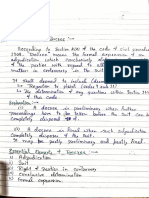 Decree :-
According to Section 2(2) of the code of Civil procedure
1908. Decree means the formal expression of an
adjudication which conclusively
of the parties with regard to all
matter in controversy in the suit
⇒ Rejection of plaint (order 7 rule 11)
⇒ the determination of any question within section 144
Explanation :-
(i) A decree is preliminary when further
proceedings have to be taken before the suit can be
completely disposed of.
(ii) A decree is final when such adjudication
completely disposes of the suit.
(iii) It may be partly preliminary and partly final.
Essential Elements of Decree :-
i) Adjudication
ii) Suit
iii) Right of Parties in controversy
iv) Conclusive determination
v) Formal expression